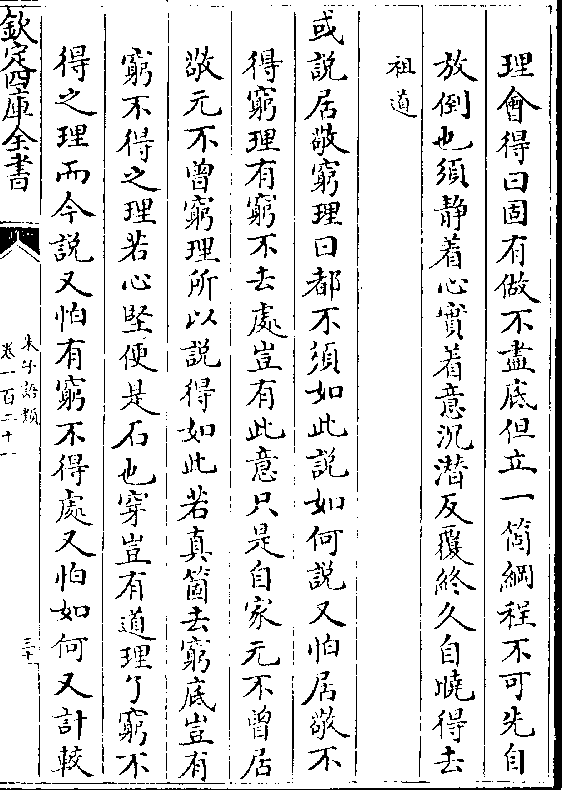 理會得曰固有做不盡底但立一箇綱程不可先自
放倒也須静着心實着意沉潛反覆終久自曉得去
祖道
或說居敬窮理曰都不須如此說如何說又怕居敬不
得窮理有窮不去處豈有此意只是自家元不曾居
敬元不曾窮理所以說得如此若真箇去窮底豈有
窮不得之理若心堅便是石也穿豈有道理了窮不
得之理而今說又怕有窮不得處又怕如何又計較
欽定四庫全書
朱子語類
卷一百二十一
三十